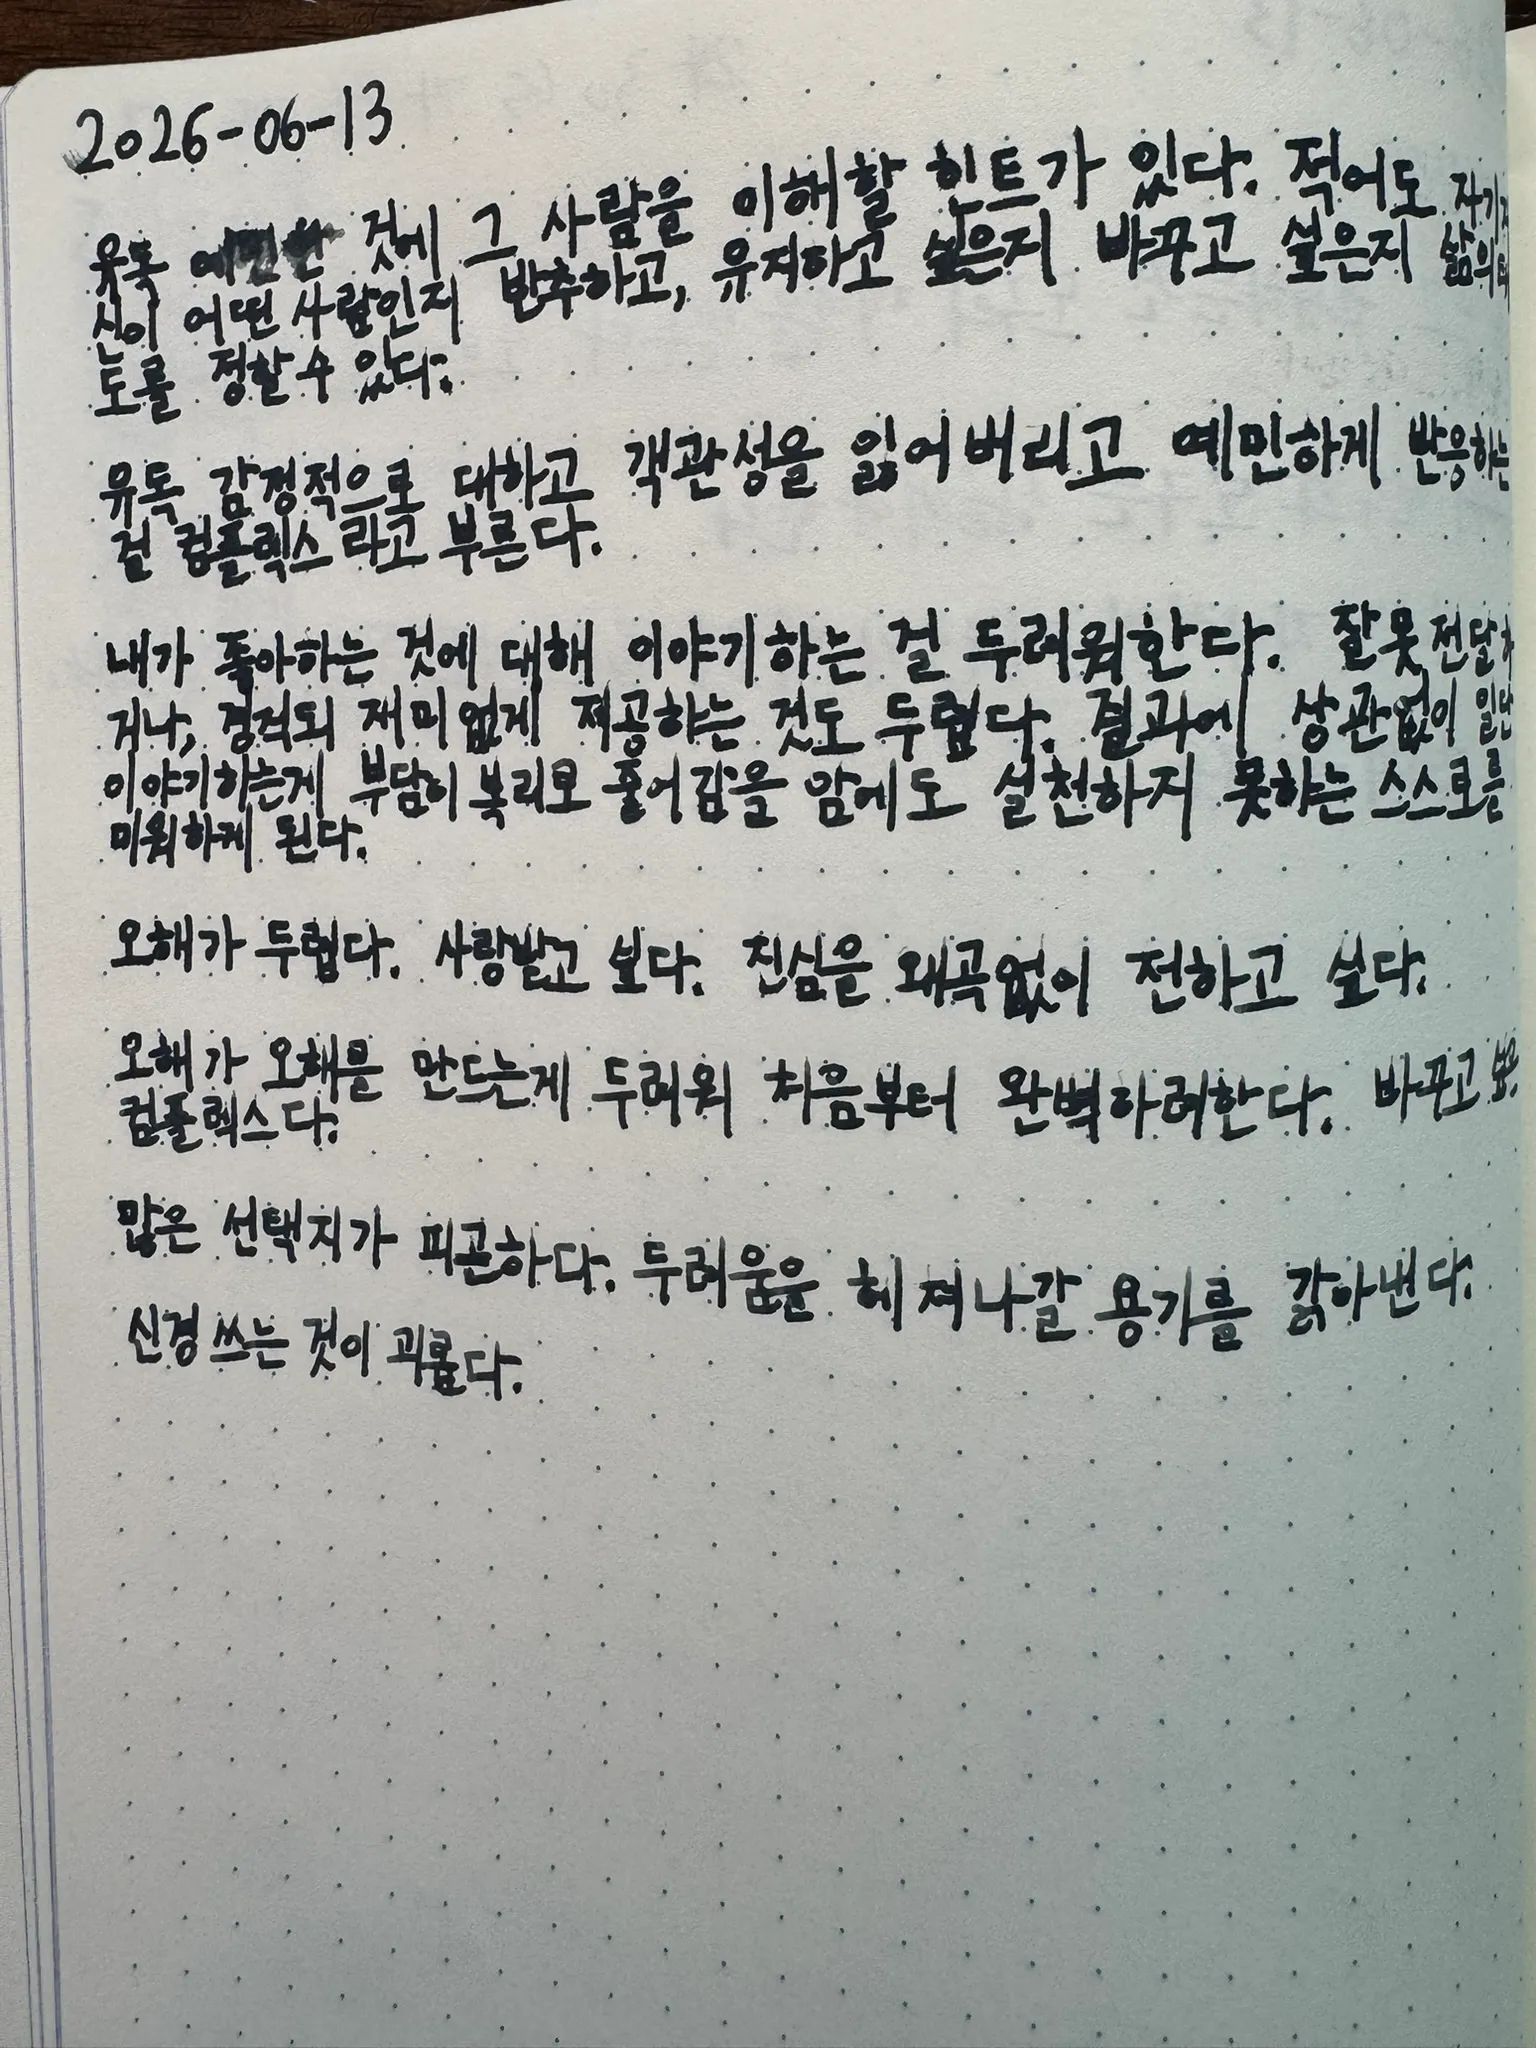 2026-06-13
유독 예민한 것에 그 사람을 이해할 힌트가 있다. 적어도 자기자
신이 어떤 사람인지 반추하고, 유지하고 싶은지 바꾸고 싶은지 삶의 태
도를 정할 수 있다.
유독 감정적으로 대하고 객관성을 잃어버리고 예민하게 반응하는
걸 컴플렉스라고 부른다.
내가 좋아하는 것에 대해 이야기하는 걸 두려워한다. 잘못 전달하
거나, 경직되 재미없게 제공하는 것도 두렵다. 결과에 상관없이 일단
이야기하는게 부담이 복리로 줄어감을 암에도 실천하지 못하는 스스로를
미워하게 된다.
오해가 두렵다. 사랑받고 싶다. 진심을 왜곡없이 전하고 싶다.
오해가 오해를 만드는게 두려워 처음부터 완벽하려한다. 바꾸고
컴플렉스다.
많은 선택지가 피곤하다. 두려움은 헤쳐나갈 용기를 갉아낸다.
신경 쓰는 것이 괴롭다.